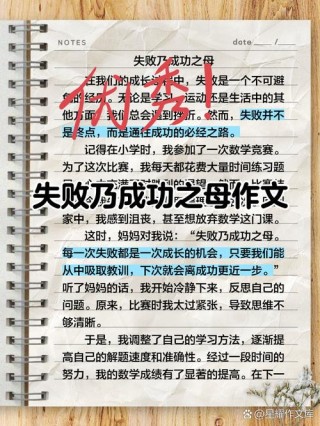 NOTES
date
失败乃成功之母
在我们的成长过程中，失败是一个不可避
免的经历。无论是学习、运动还是生活中的其
他方面，我们总会遇到挫折。然而，失败并不
是终点，而是通往成功的必经之路。
优秀！
记得在小学时，我参加了一次数学竞赛。
为了这次比赛，我每天都花费大量时间练习题
失败乃成功之母作文
家中，我感到沮丧，甚至想放弃数学这门课。
这时，妈妈对我说：“失败乃成功之母。
每一次失败都是一次成长的机会，只要我们能
从中吸取教训，下次就会离成功更近一步。”
听了妈妈的话，我开始冷静下来，反思自己的
问题。原来，比赛时我太过紧张，导致思维不
够清晰。
于是，我调整了自己的学习方法，逐渐提
高自己的解题速度和准确性。经过一段时间的
努力，我的数学成绩有了显著的提高。在下一
@星耀作文库